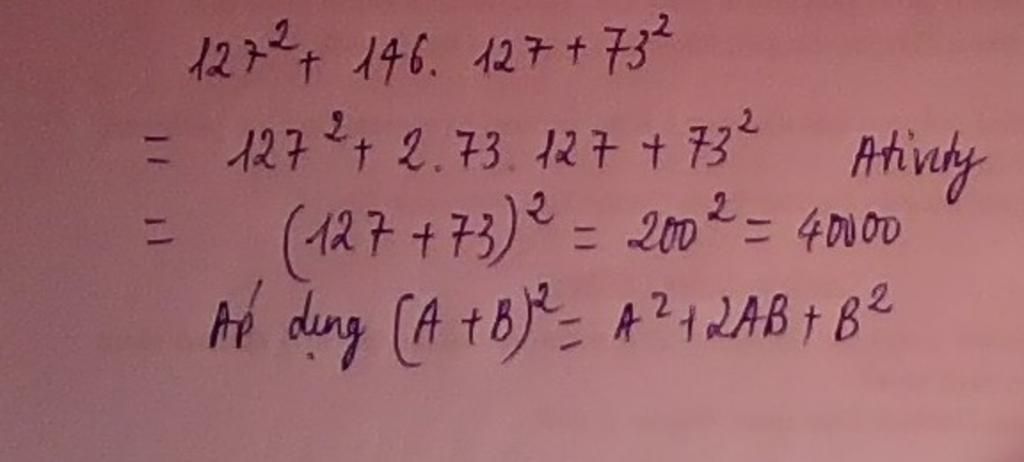 127² + 146. 127 + 73²
= 127² + 2. 73. 127 + 73² Ativity
= (127 + 73)² = 200² = 40000
Áp dụng (A + B)² = A² + 2AB + B²